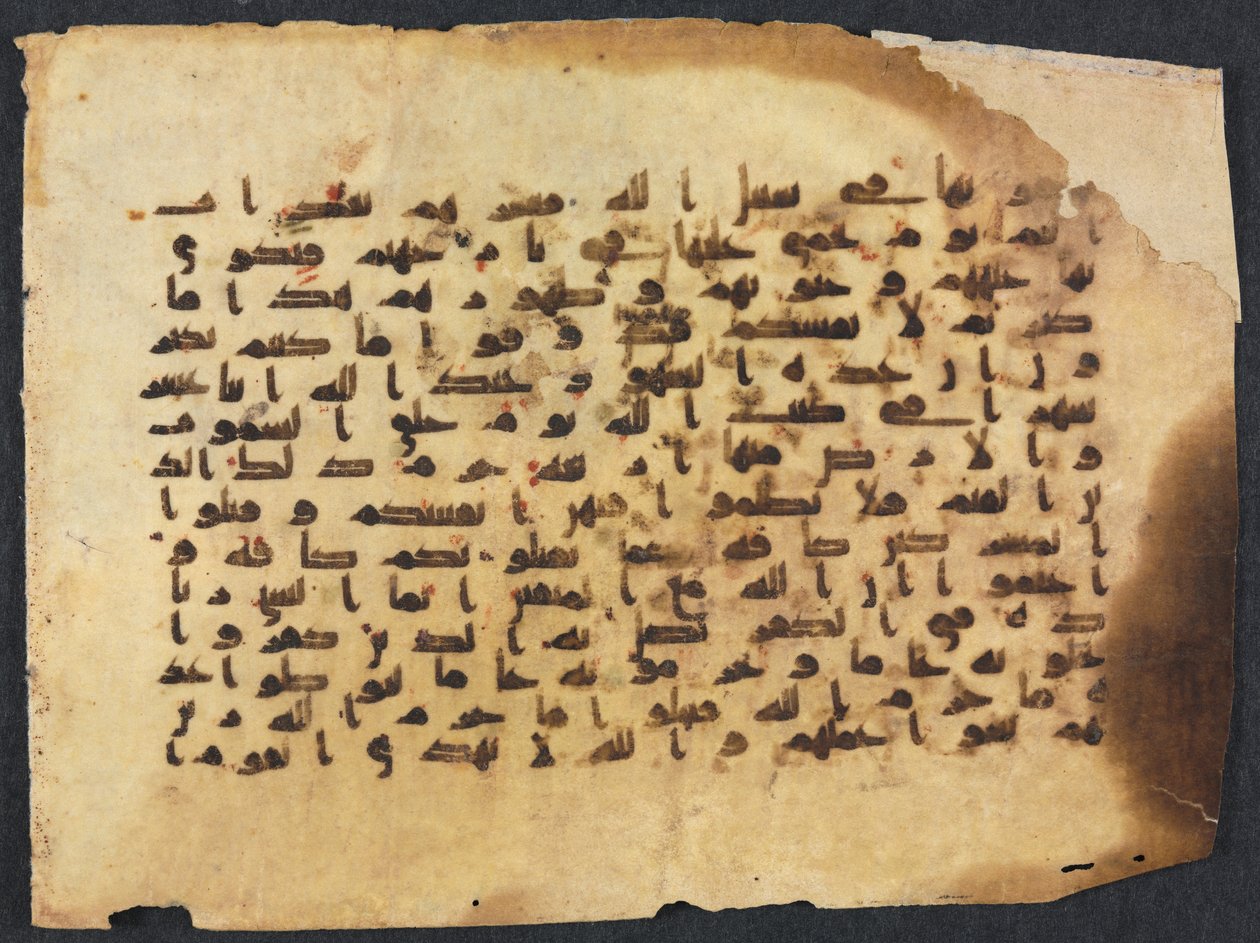 نها في سبيل الله فبشرهم بعذاب
اليم يوم يحمى عليها في نار جهنم فتكوى
بها جباههم وجنوبهم وظهورهم هذا ما
كنزتم لانفسكم فذوقوا ما كنتم تكنز
ون ان عدة الشهور عند الله اثنا عشر
شهرا في كتب الله يوم خلق السموت
والارض منها اربعة حرم ذلك الد
ين القيم فلا تظلموا فيهن انفسكم وقتلوا
المشركين كافة كما يقتلونكم كافة و
اعلموا ان الله مع المتقين انما النسى زيا
دة في الكفر يضل به الذين كفروا
يحلونه عاما ويحرمونه عاما ليواطوا عد
ة ما حرم الله فيحلوا ما حرم الله زين
لهم سوا عملهم والله لا يهدى القوم ا